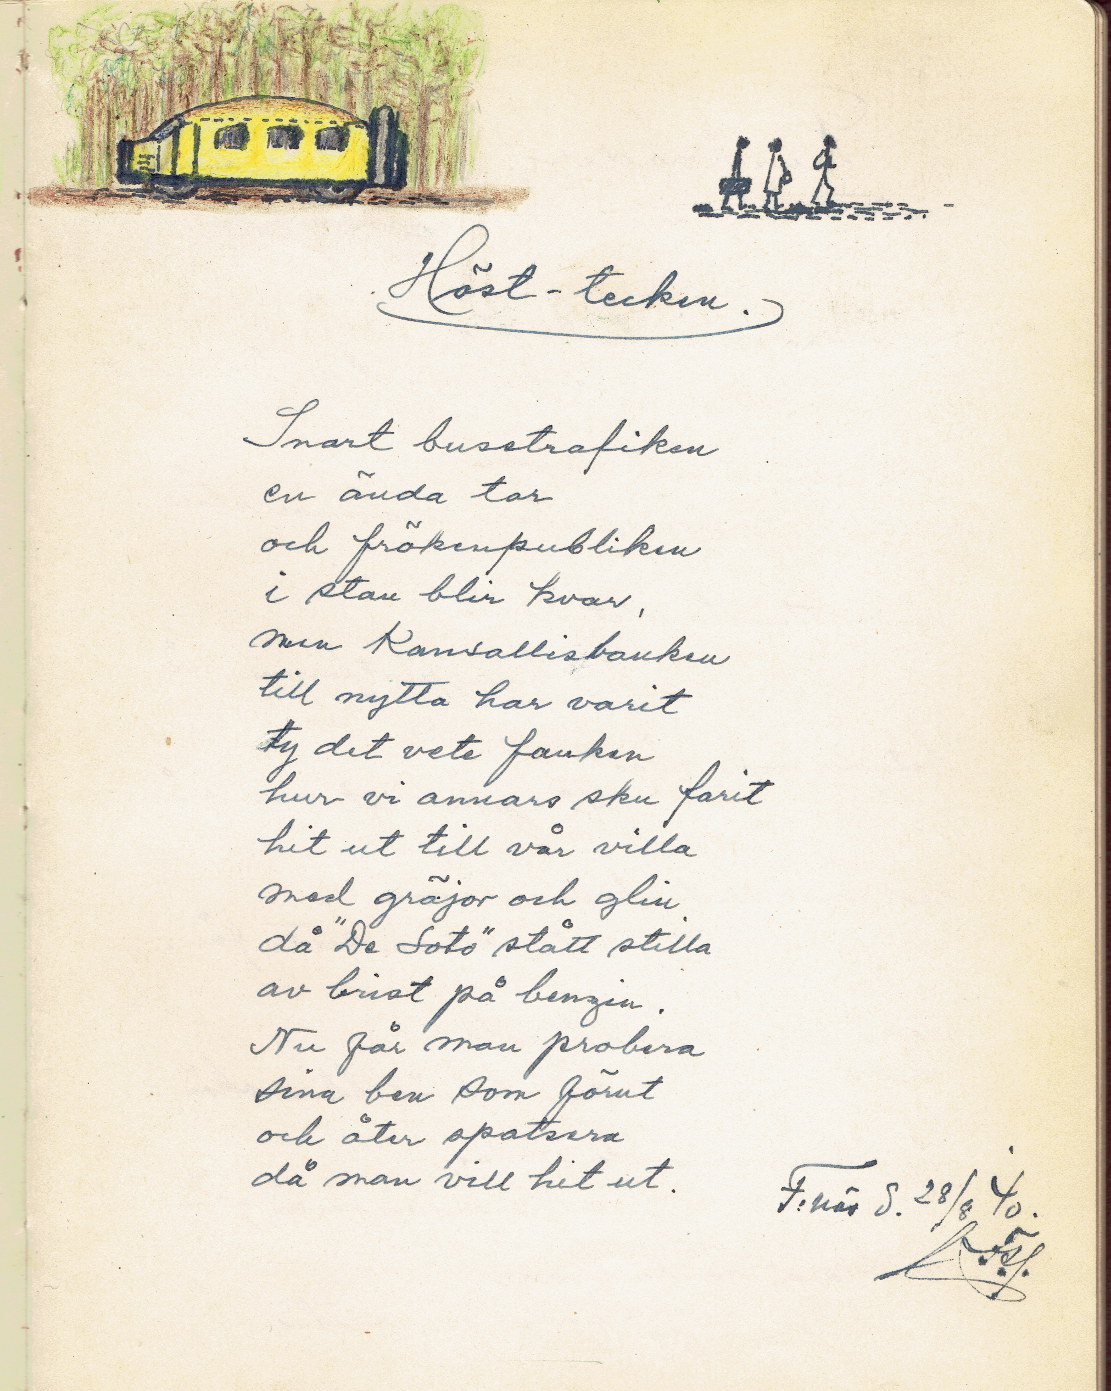 Höst-tecken.
Snart busstrafiken
en ända tar
och frökenpubliken
i stan blir kvar,
men Kansallisbanken
till nytta har varit
ty det vete fanken
hur vi annars sku farit
hit ut till vår villa
med gräjor och glin
då "De Soto" stått stilla
av brist på benzin.
Nu får man probera
sina ben som förut
och åter spatsera
då man vill hit ut.
F:näs S. 28/8 40.